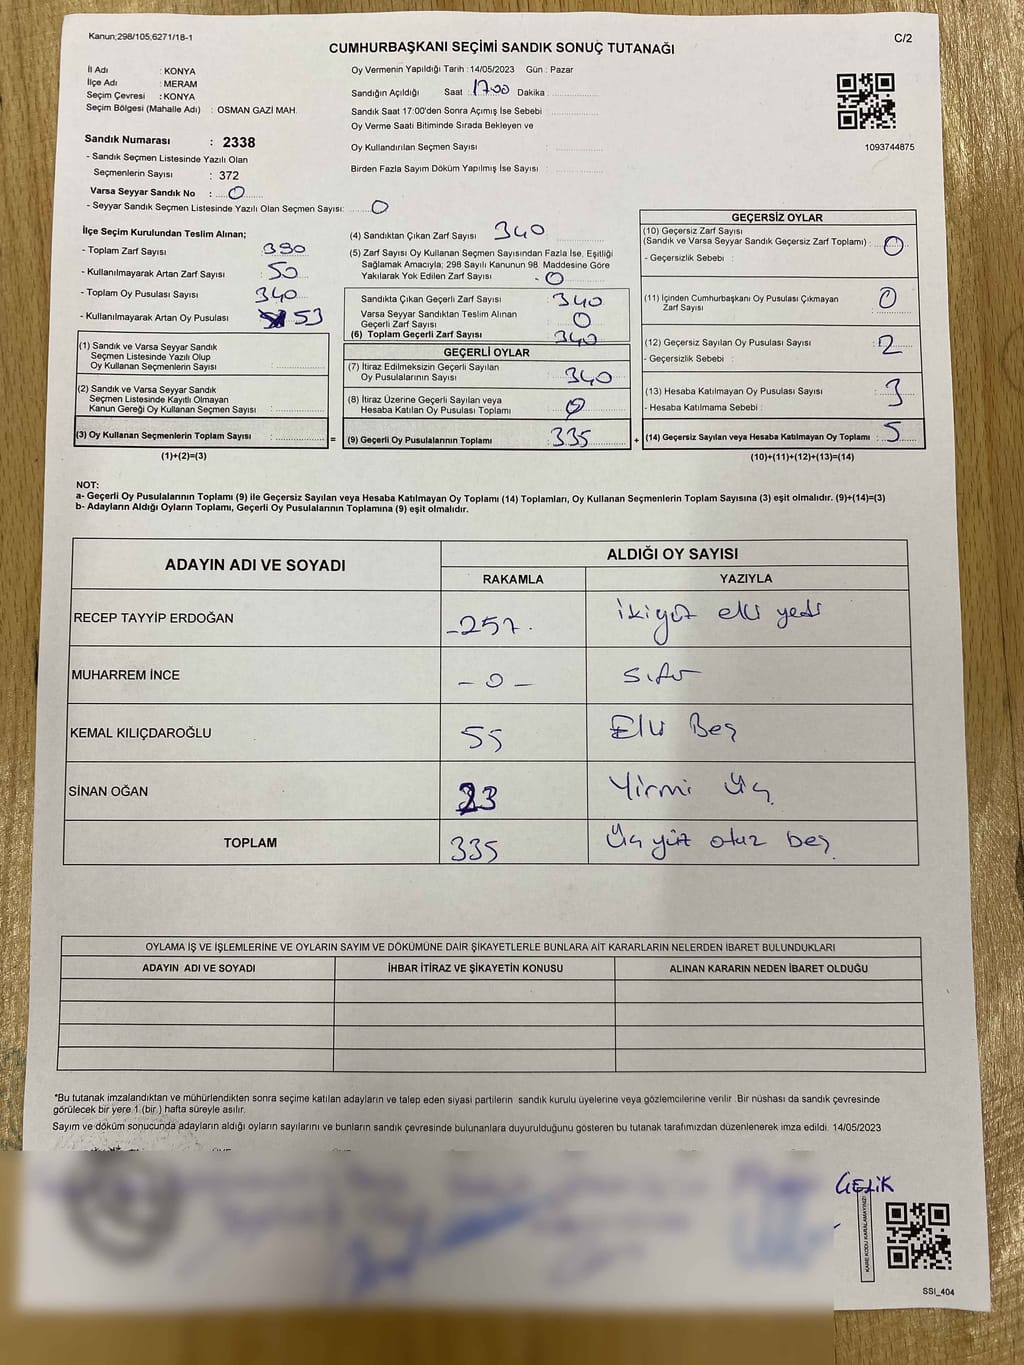 Kanun;298/105;6271/18-1
C/2
CUMHURBAŞKANI SEÇİMİ SANDIK SONUÇ TUTANAĞI
İl Adı : KONYA
İlçe Adı : MERAM
Seçim Çevresi : KONYA
Seçim Bölgesi (Mahalle Adı) : OSMAN GAZİ MAH.
Oy Vermenin Yapıldığı Tarih : 14/05/2023 Gün : Pazar
Sandığın Açıldığı Saat 17.00 Dakika
Sandık Saat 17:00'den Sonra Açımış İse Sebebi
Oy Verme Saati Bitiminde Sırada Bekleyen ve
Oy Kullandırılan Seçmen Sayısı
Birden Fazla Sayım Döküm Yapılmış İse Sayısı :
1093744875
Sandık Numarası : 2338
- Sandık Seçmen Listesinde Yazılı Olan
Seçmenlerin Sayısı : 372
Varsa Seyyar Sandık No : 0
- Seyyar Sandık Seçmen Listesinde Yazılı Olan Seçmen Sayısı: 0
İlçe Seçim Kurulundan Teslim Alınan;
- Toplam Zarf Sayısı 390
- Kullanılmayarak Artan Zarf Sayısı : 50
- Toplam Oy Pusulası Sayısı 340
- Kullanılmayarak Artan Oy Pusulası 53
(1) Sandık ve Varsa Seyyar Sandık
Seçmen Listesinde Yazılı Olup
Oy Kullanan Seçmenlerin Sayısı :
(2) Sandık ve Varsa Seyyar Sandık
Seçmen Listesinde Kayıtlı Olmayan
Kanun Gereği Oy Kullanan Seçmen Sayısı :
(3) Oy Kullanan Seçmenlerin Toplam Sayısı : =
(1)+(2)=(3)
(4) Sandıktan Çıkan Zarf Sayısı : 340
(5) Zarf Sayısı Oy Kullanan Seçmen Sayısından Fazla İse, Eşitliği
Sağlamak Amacıyla; 298 Sayılı Kanunun 98. Maddesine Göre
Yakılarak Yok Edilen Zarf Sayısı - 0
Sandıkta Çıkan Geçerli Zarf Sayısı : 340
Varsa Seyyar Sandıktan Teslim Alınan
Geçerli Zarf Sayısı : 0
(6) Toplam Geçerli Zarf Sayısı 340
GEÇERLİ OYLAR
(7) İtiraz Edilmeksizin Geçerli Sayılan
Oy Pusulalarının Sayısı : 340
(8) İtiraz Üzerine Geçerli Sayılan veya
Hesaba Katılan Oy Pusulası Toplamı : 0
(9) Geçerli Oy Pusulalarının Toplamı : 335 +
GEÇERSİZ OYLAR
(10) Geçersiz Zarf Sayısı
(Sandık ve Varsa Seyyar Sandık Geçersiz Zarf Toplamı) : 0
- Geçersizlik Sebebi :
(11) İçinden Cumhurbaşkanı Oy Pusulası Çıkmayan
Zarf Sayısı : 0
(12) Geçersiz Sayılan Oy Pusulası Sayısı : 2
- Geçersizlik Sebebi :
(13) Hesaba Katılmayan Oy Pusulası Sayısı : 3
- Hesaba Katılmama Sebebi :
(14) Geçersiz Sayılan veya Hesaba Katılmayan Oy Toplamı : 5
(10)+(11)+(12)+(13)=(14)
NOT:
a- Geçerli Oy Pusulalarının Toplamı (9) ile Geçersiz Sayılan veya Hesaba Katılmayan Oy Toplamı (14) Toplamları, Oy Kullanan Seçmenlerin Toplam Sayısına (3) eşit olmalıdır. (9)+(14)=(3)
b- Adayların Aldığı Oyların Toplamı, Geçerli Oy Pusulalarının Toplamına (9) eşit olmalıdır.
ADAYIN ADI VE SOYADI ALDIĞI OY SAYISI
RAKAMLA YAZIYLA
RECEP TAYYİP ERDOĞAN -257. ikiyüz elli yedi
MUHARREM İNCE - 0 - Sıfır
KEMAL KILIÇDAROĞLU 55 Elli Beş
SİNAN OĞAN 23 Yirmi Üç
TOPLAM 335 Üç yüz otuz beş
OYLAMA İŞ VE İŞLEMLERİNE VE OYLARIN SAYIM VE DÖKÜMÜNE DAİR ŞİKAYETLERLE BUNLARA AİT KARARLARIN NELERDEN İBARET BULUNDUKLARI
ADAYIN ADI VE SOYADI İHBAR İTİRAZ VE ŞİKAYETİN KONUSU ALINAN KARARIN NEDEN İBARET OLDUĞU
*Bu tutanak imzalandıktan ve mühürlendikten sonra seçime katılan adayların ve talep eden siyasi partilerin sandık kurulu üyelerine veya gözlemcilerine verilir. Bir nüshası da sandık çevresinde
görülecek bir yere 1 (bir ) hafta süreyle asılır.
Sayım ve döküm sonucunda adayların aldığı oyların sayılarını ve bunların sandık çevresinde bulunanlara duyurulduğunu gösteren bu tutanak tarafımızdan düzenlenerek imza edildi. 14/05/2023
ÇELİK
KARE KODU KARALAMAYINIZ!
SSI_404